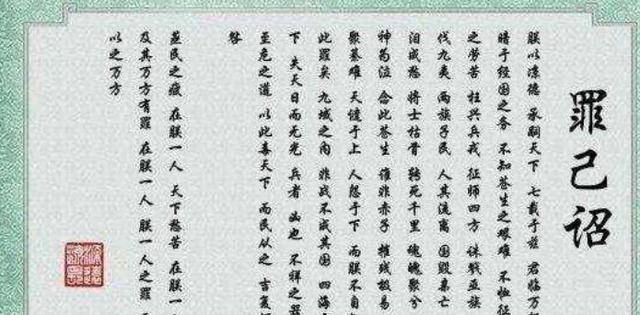 罪己诏
朕以凉德 承嗣天下 七载于兹 君临万
暗于经国之务 不知苍生之艰难 不恤征
之劳苦 枉兴兵戎 征师四方 诛戮亚族
伐九夷 两族子民 人其流离 国毁妻亡
泪成愁 将士枯骨 骑死千里 魂魄聚兮
神为泣 念此苍生 谁非赤子 摧残极易
聚篡难 天谴于上 人怨于下 而朕不自
此罪矣 九域之内 非战不成其国 四海
下 失天日而无光 兵者 凶也 不祥之器
至危之道 以此毒天下 而民从之 吉复
咎
蒸民之疲 在朕一人 天下愁苦 在朕一
及其万方有罪 在朕一人 朕一人之罪
以之万方